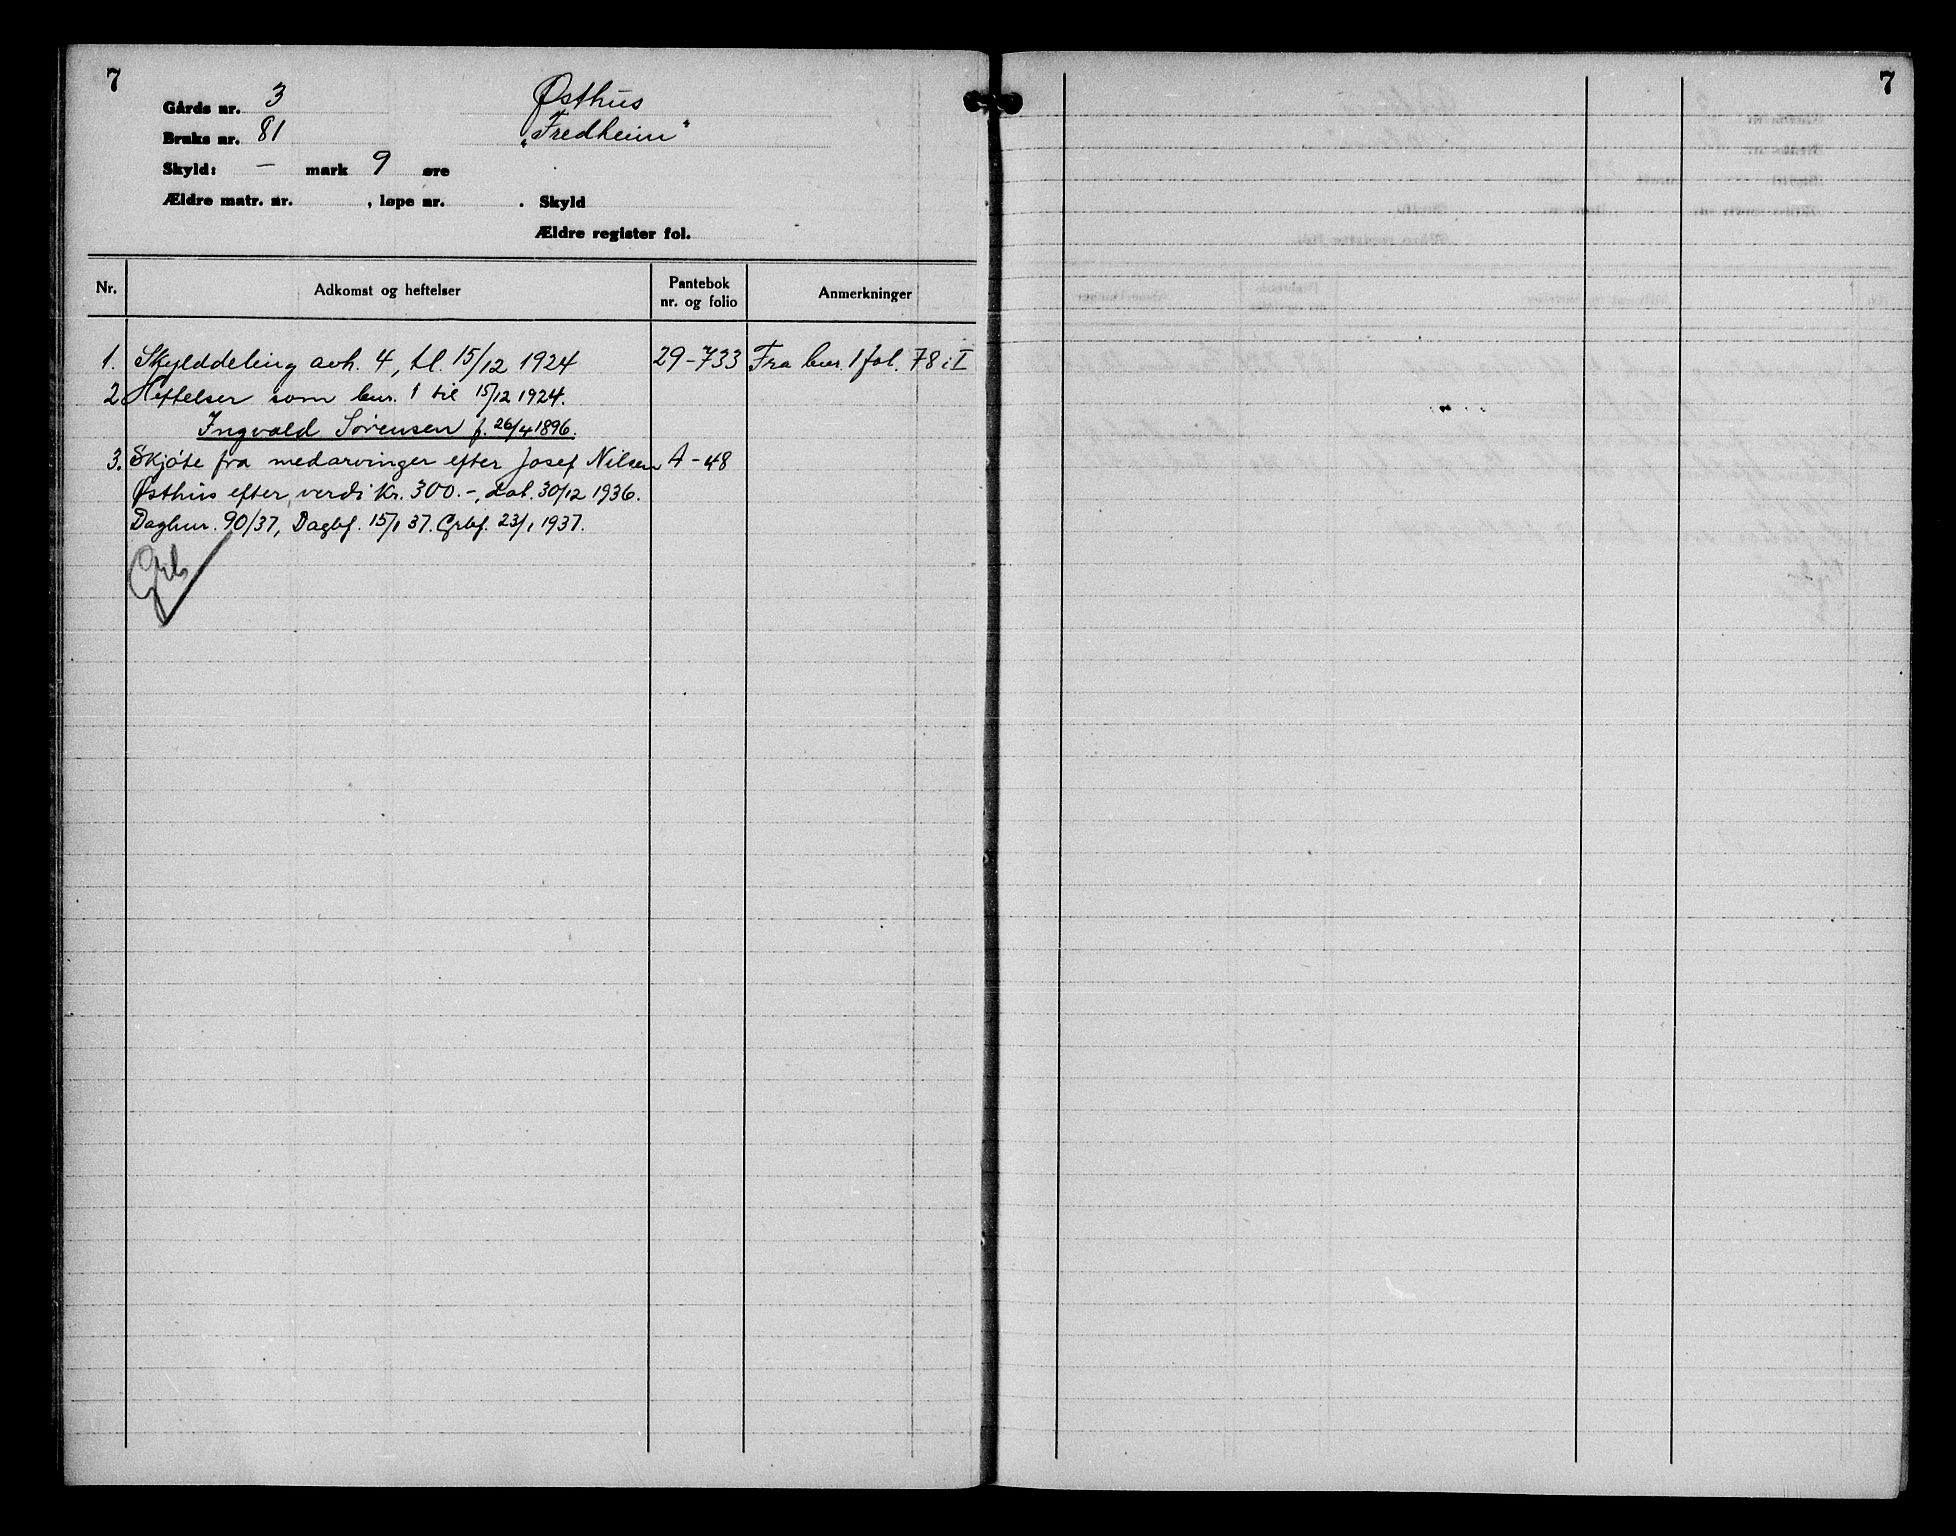 7
Gårds nr. 3 Østhus
Bruks nr. 81 "Fredheim"
Skyld: — mark 9 øre
Ældre matr. nr. , løpe nr. . Skyld
Ældre register fol.
Nr. Adkomst og heftelser Pantebok nr. og folio Anmerkninger
1. Skylddeling avh. 4, tl. 15/12 1924 29-733 Fra bnr. 1 fol. 78 i I
2 Heftelser som bnr. 1 til 15/12 1924.
Ingvald Sørensen f. 26/4 1896.
3. Skjøte fra medarvinger efter Josef Nilsen A-48
Østhus efter verdi Kr. 300.-, dat. 30/12 1936.
Dagbnr. 90/37, Dagbf. 15/1 37. Grbf. 23/1 1937.
7